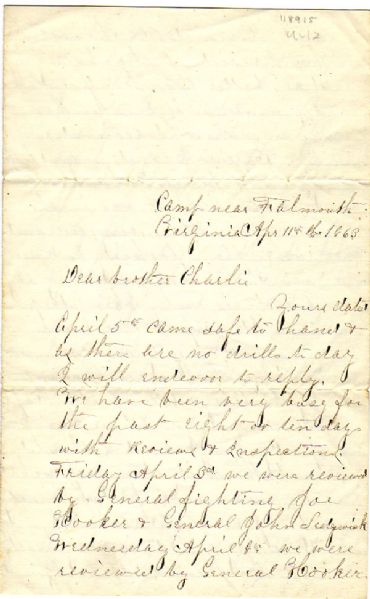 118915
Camp near Falmouth
Virginia Apr 11th 1863
Dear brother Charlie
Yours date
April 5th came safe to hand &
as there are no drills to day
I will endevor to reply.
We have been very base for
the past eight or ten days
with Reviews & Inspections
Friday April 3d we were reviewed
by General fighting Joe
Hooker & General John Sedgwick
Wednesday April 8 we were
reviewed by General Hooker